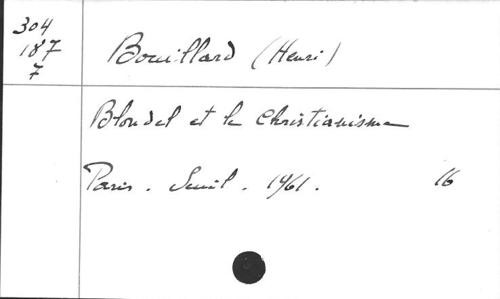 304
187
7
Bouillard (Henri)
Blondel et le Christianisme
Paris. Seuil. 1961.
16